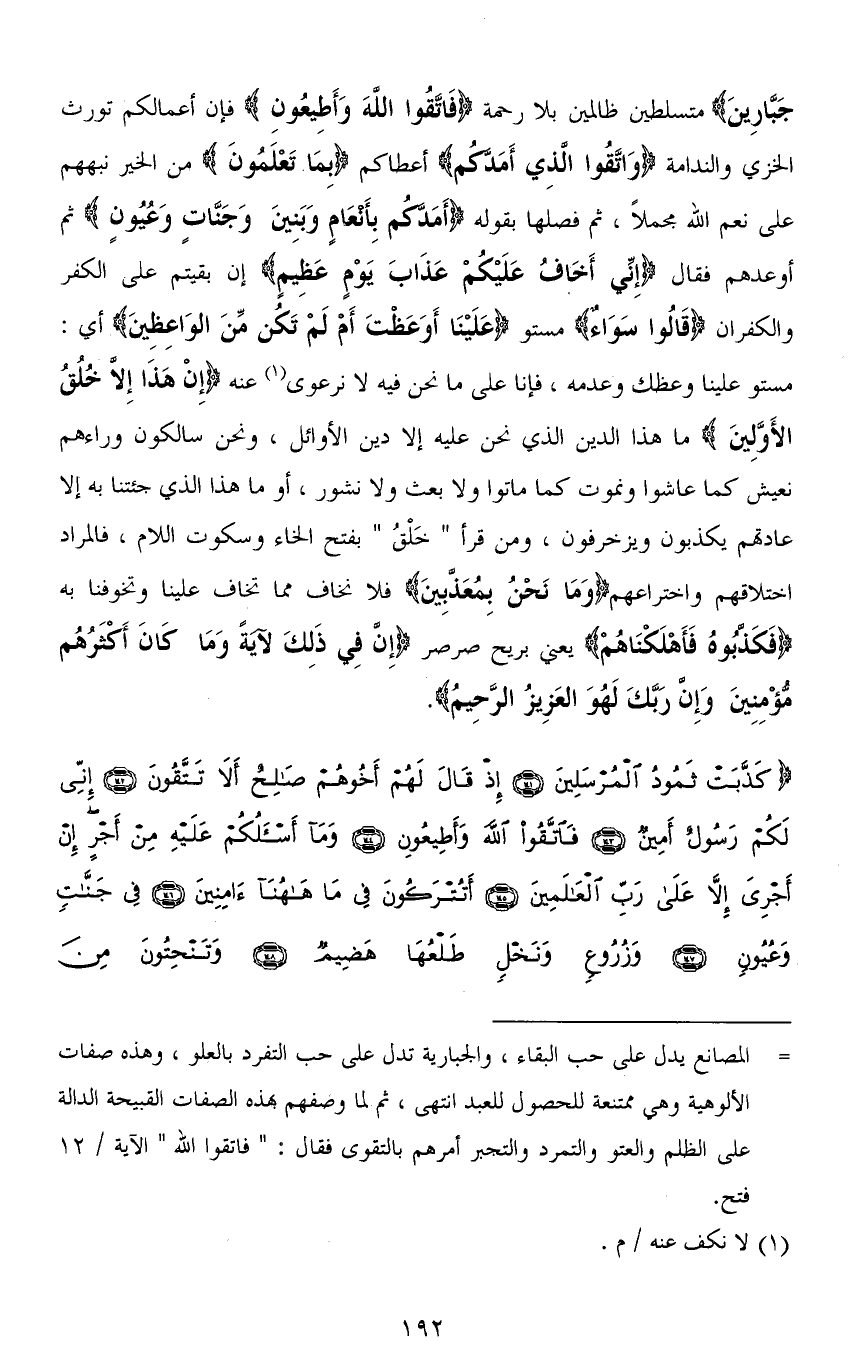 جَبَّارِينَ﴾ متسلطين ظالمين بلا رحمة ﴿فَاتَّقُوا اللَّهَ وَأَطِيعُونِ ﴾ فإن أعمالكم تورث
الخزي والندامة ﴿وَاتَّقُوا الَّذِي أَمَدَّكُم﴾ أعطاكم ﴿بِمَا تَعْلَمُونَ ﴾ من الخير نبههم
على نعم الله مجملاً ، ثم فصلها بقوله ﴿أَمَدَّكُم بِأَنْعَامٍ وَبَنِينَ وَجَنَّاتٍ وَعُيُونٍ ﴾ ثم
أوعدهم فقال ﴿إِنِّي أَخَافُ عَلَيْكُمْ عَذَابَ يَوْمٍ عَظِيمٍ﴾ إن بقيتم على الكفر
والكفران ﴿قَالُوا سَوَاءٌ﴾ مستو ﴿عَلَيْنَا أَوَعَظْتَ أَمْ لَمْ تَكُن مِّنَ الوَاعِظِينَ﴾ أي :
مستو علينا وعظك وعدمه ، فإنا على ما نحن فيه لا نرعوى(١) عنه ﴿إِنْ هَذَا إِلاَّ خُلُقُ
الأَوَّلِينَ ﴾ ما هذا الدين الذي نحن عليه إلا دين الأوائل ، ونحن سالكون وراءهم
نعيش كما عاشوا ونموت كما ماتوا ولا بعث ولا نشور ، أو ما هذا الذي جئتنا به إلا
عادتهم يكذبون ويزخرفون ، ومن قرأ " خَلْقُ " بفتح الخاء وسكوت اللام ، فالمراد
اختلاقهم واختراعهم﴿وَمَا نَحْنُ بِمُعَذَّبِينَ﴾ فلا نخاف مما تخاف علينا وتخوفنا به
﴿فَكَذَّبُوهُ فَأَهْلَكْنَاهُمْ﴾ يعني بريح صرصر ﴿إِنَّ فِي ذَلِكَ لآيَةً وَمَا كَانَ أَكْثَرُهُم
مُّؤْمِنِينَ وَإِنَّ رَبَّكَ لَهُوَ العَزِيزُ الرَّحِيمُ﴾.
﴿ كَذَّبَتْ ثَمُودُ ٱلْمُرْسَلِينَ ١٤١ إِذْ قَالَ لَهُمْ أَخُوهُمْ صَٰلِحٌ أَلَا تَتَّقُونَ ١٤٢ إِنِّى
لَكُمْ رَسُولٌ أَمِينٌ ١٤٣ فَٱتَّقُوا۟ ٱللَّهَ وَأَطِيعُونِ ١٤٤ وَمَآ أَسْـَٔلُكُمْ عَلَيْهِ مِنْ أَجْرٍ ۖ إِنْ
أَجْرِىَ إِلَّا عَلَىٰ رَبِّ ٱلْعَٰلَمِينَ ١٤٥ أَتُتْرَكُونَ فِى مَا هَٰهُنَآ ءَامِنِينَ ١٤٦ فِى جَنَّٰتٍ
وَعُيُونٍ ١٤٧ وَزُرُوعٍ وَنَخْلٍ طَلْعُهَا هَضِيمٌ ١٤٨ وَتَنْحِتُونَ مِنَ
= المصانع يدل على حب البقاء ، والجبارية تدل على حب التفرد بالعلو ، وهذه صفات
الألوهية وهي ممتنعة للحصول للعبد انتهى ، ثم لما وصفهم بهذه الصفات القبيحة الدالة
على الظلم والعتو والتمرد والتجبر أمرهم بالتقوى فقال : " فاتقوا الله " الآية / ١٢
فتح.
(١) لا نكف عنه / م .
١٩٢